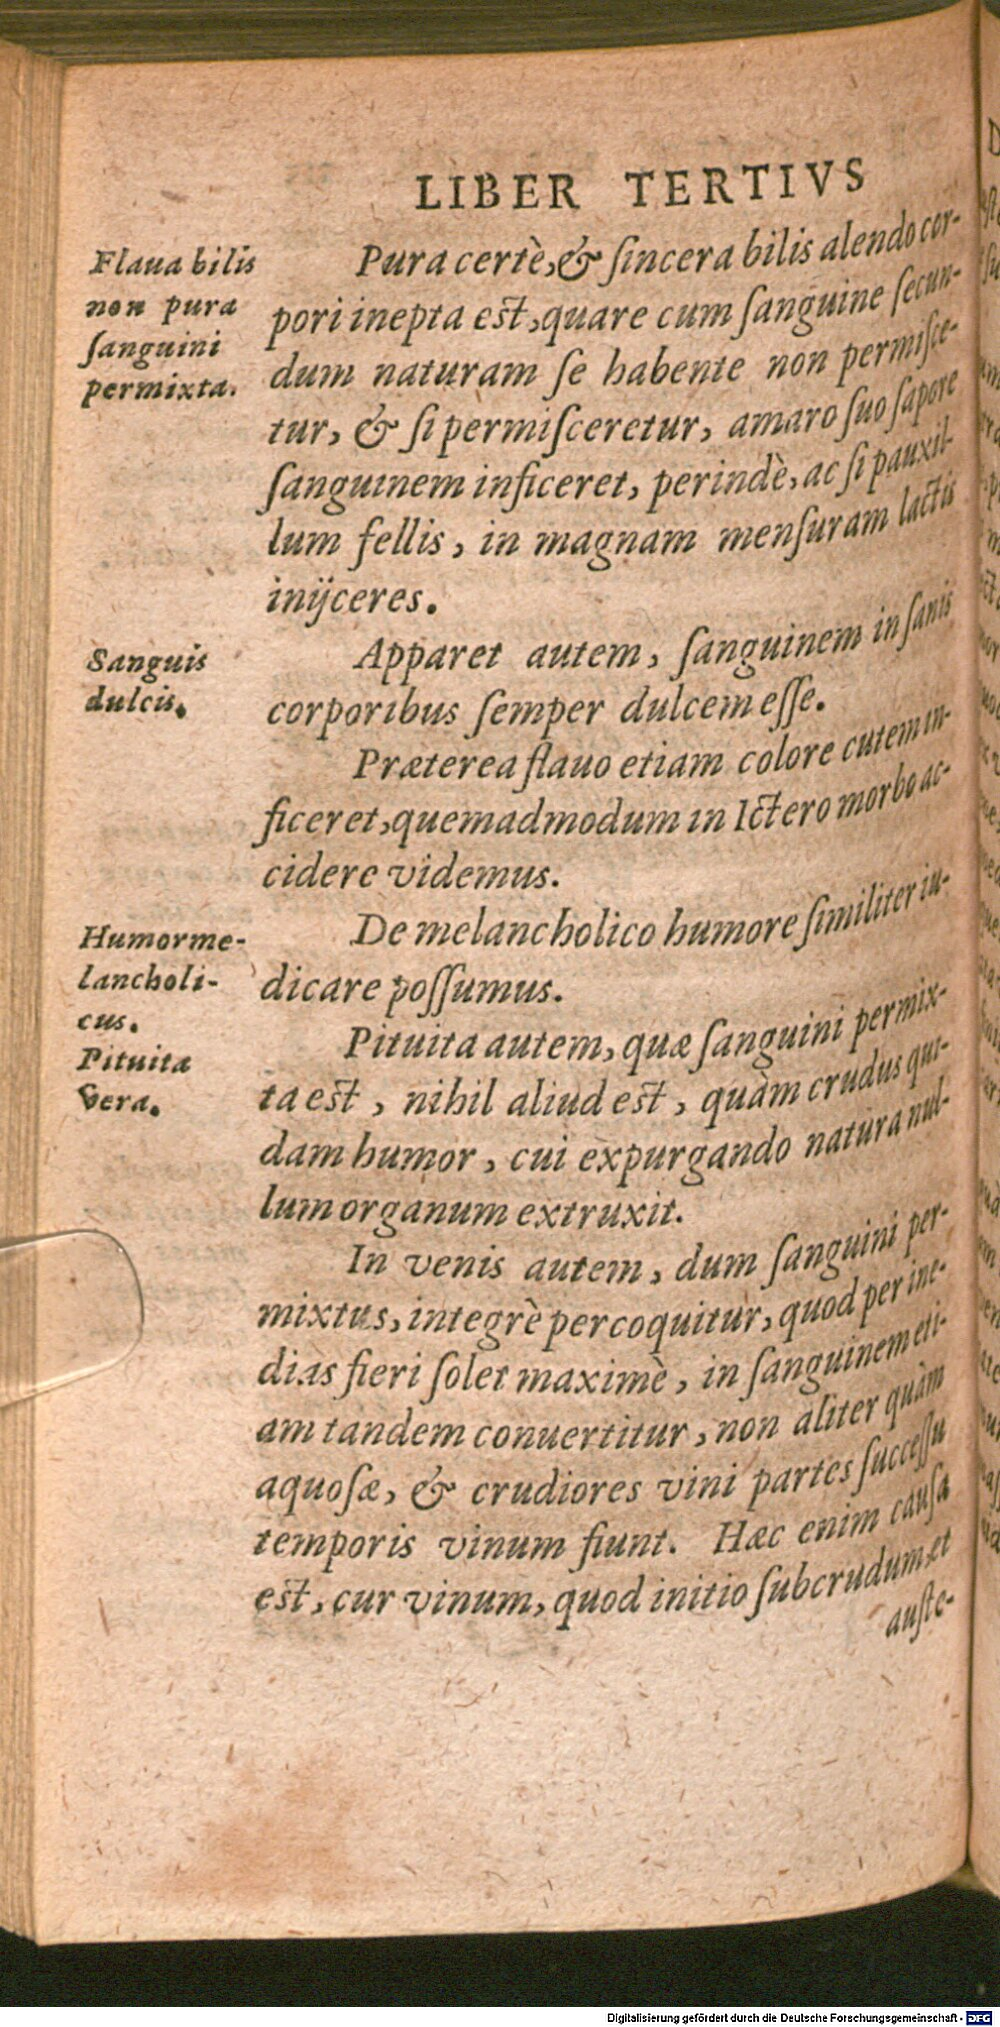 LIBER TERTIVS
Flaua bilis
non pura
ſanguini
permixta.
Pura certè, & ſincera bilis alendo cor-
pori inepta est, quare cum ſanguine ſecun-
dum naturam ſe habente non permiſce-
tur, & ſi permiſceretur, amaro ſuo ſapore
ſanguinem inficeret, perindè, ac ſi pauxil-
lum fellis, in magnam menſuram lactis
inijceres.
Sanguis
dulcis.
Apparet autem, ſanguinem in ſanis
corporibus ſemper dulcem eſſe.
Præterea flauo etiam colore cutem in-
ficeret, quemadmodum in Ictero morbo ac-
cidere videmus.
Humor me-
lancholi-
cus.
De melancholico humore ſimiliter iu-
dicare poſſumus.
Pituita
vera.
Pituita autem, quæ ſanguini permix-
ta est, nihil aliud est, quàm crudus qui-
dam humor, cui expurgando natura nul-
lum organum extruxit.
In venis autem, dum ſanguini per-
mixtus, integrè percoquitur, quod per ine-
dias fieri ſolet maximè, in ſanguinem eti-
am tandem conuertitur, non aliter quàm
aquoſæ, & crudiores vini partes ſucceſſu
temporis vinum fiunt. Hæc enim cauſa
est, cur vinum, quod initio ſubcrudum, et
auſte-
Digitalisierung gefördert durch die Deutsche Forschungsgemeinschaft - DFG